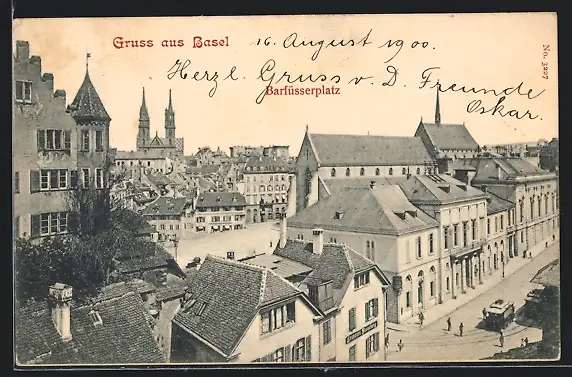 Gruss aus Basel
16. August 1900.
No. 3227
Herzl. Gruss v. D. Freunde
Oskar.
Barfüsserplatz